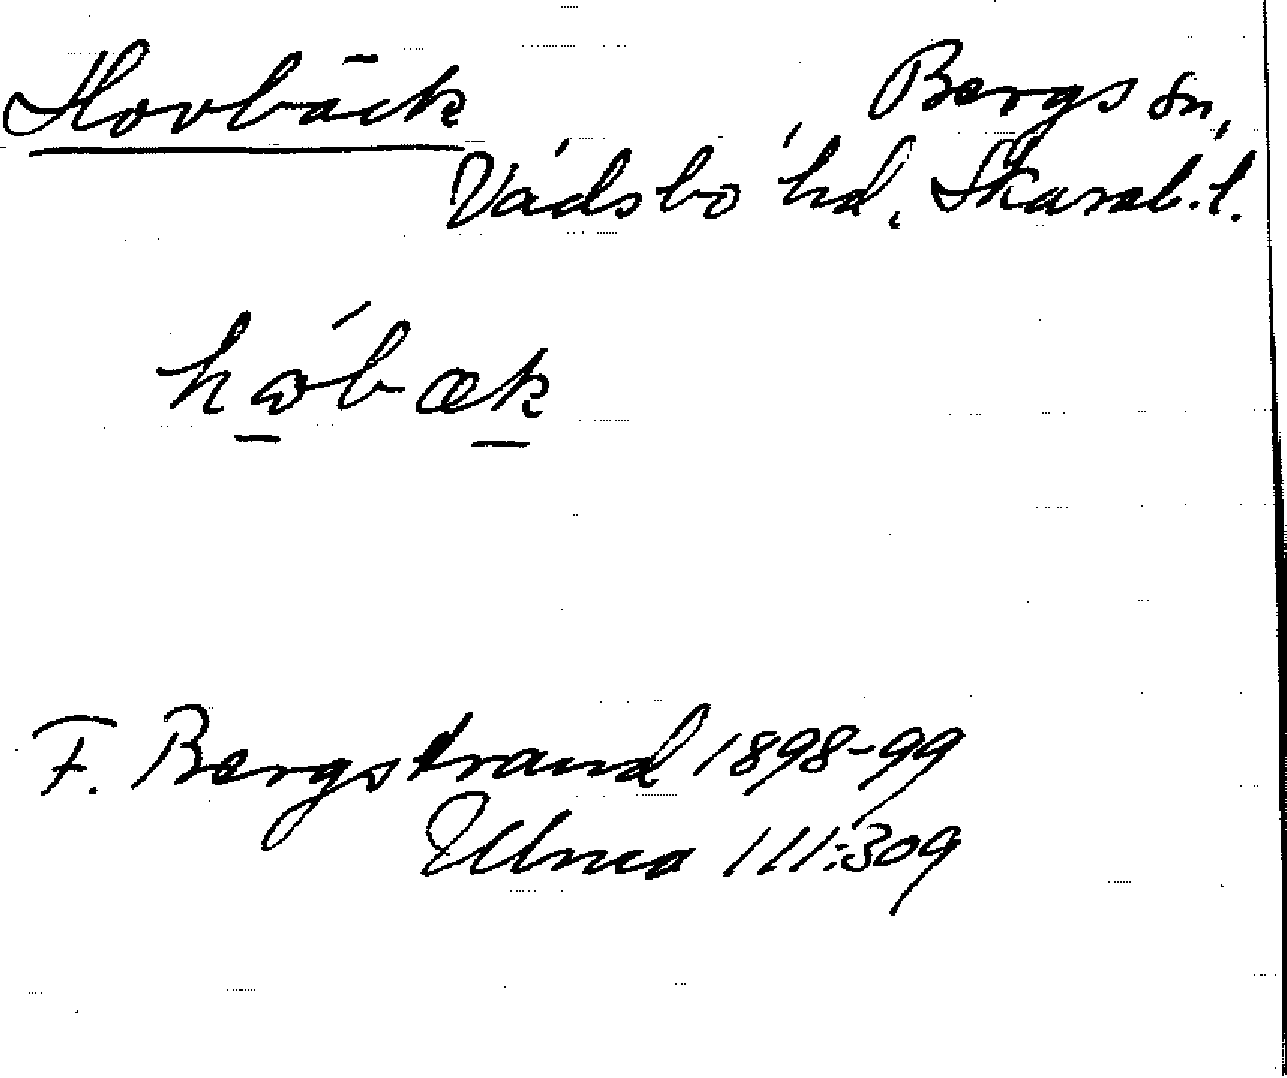 Hovbäck Bergs sn,
Vadsbo hd, Skarab.l.
hωbæk
F. Bergstrand 1898-99
Ulma 111:309